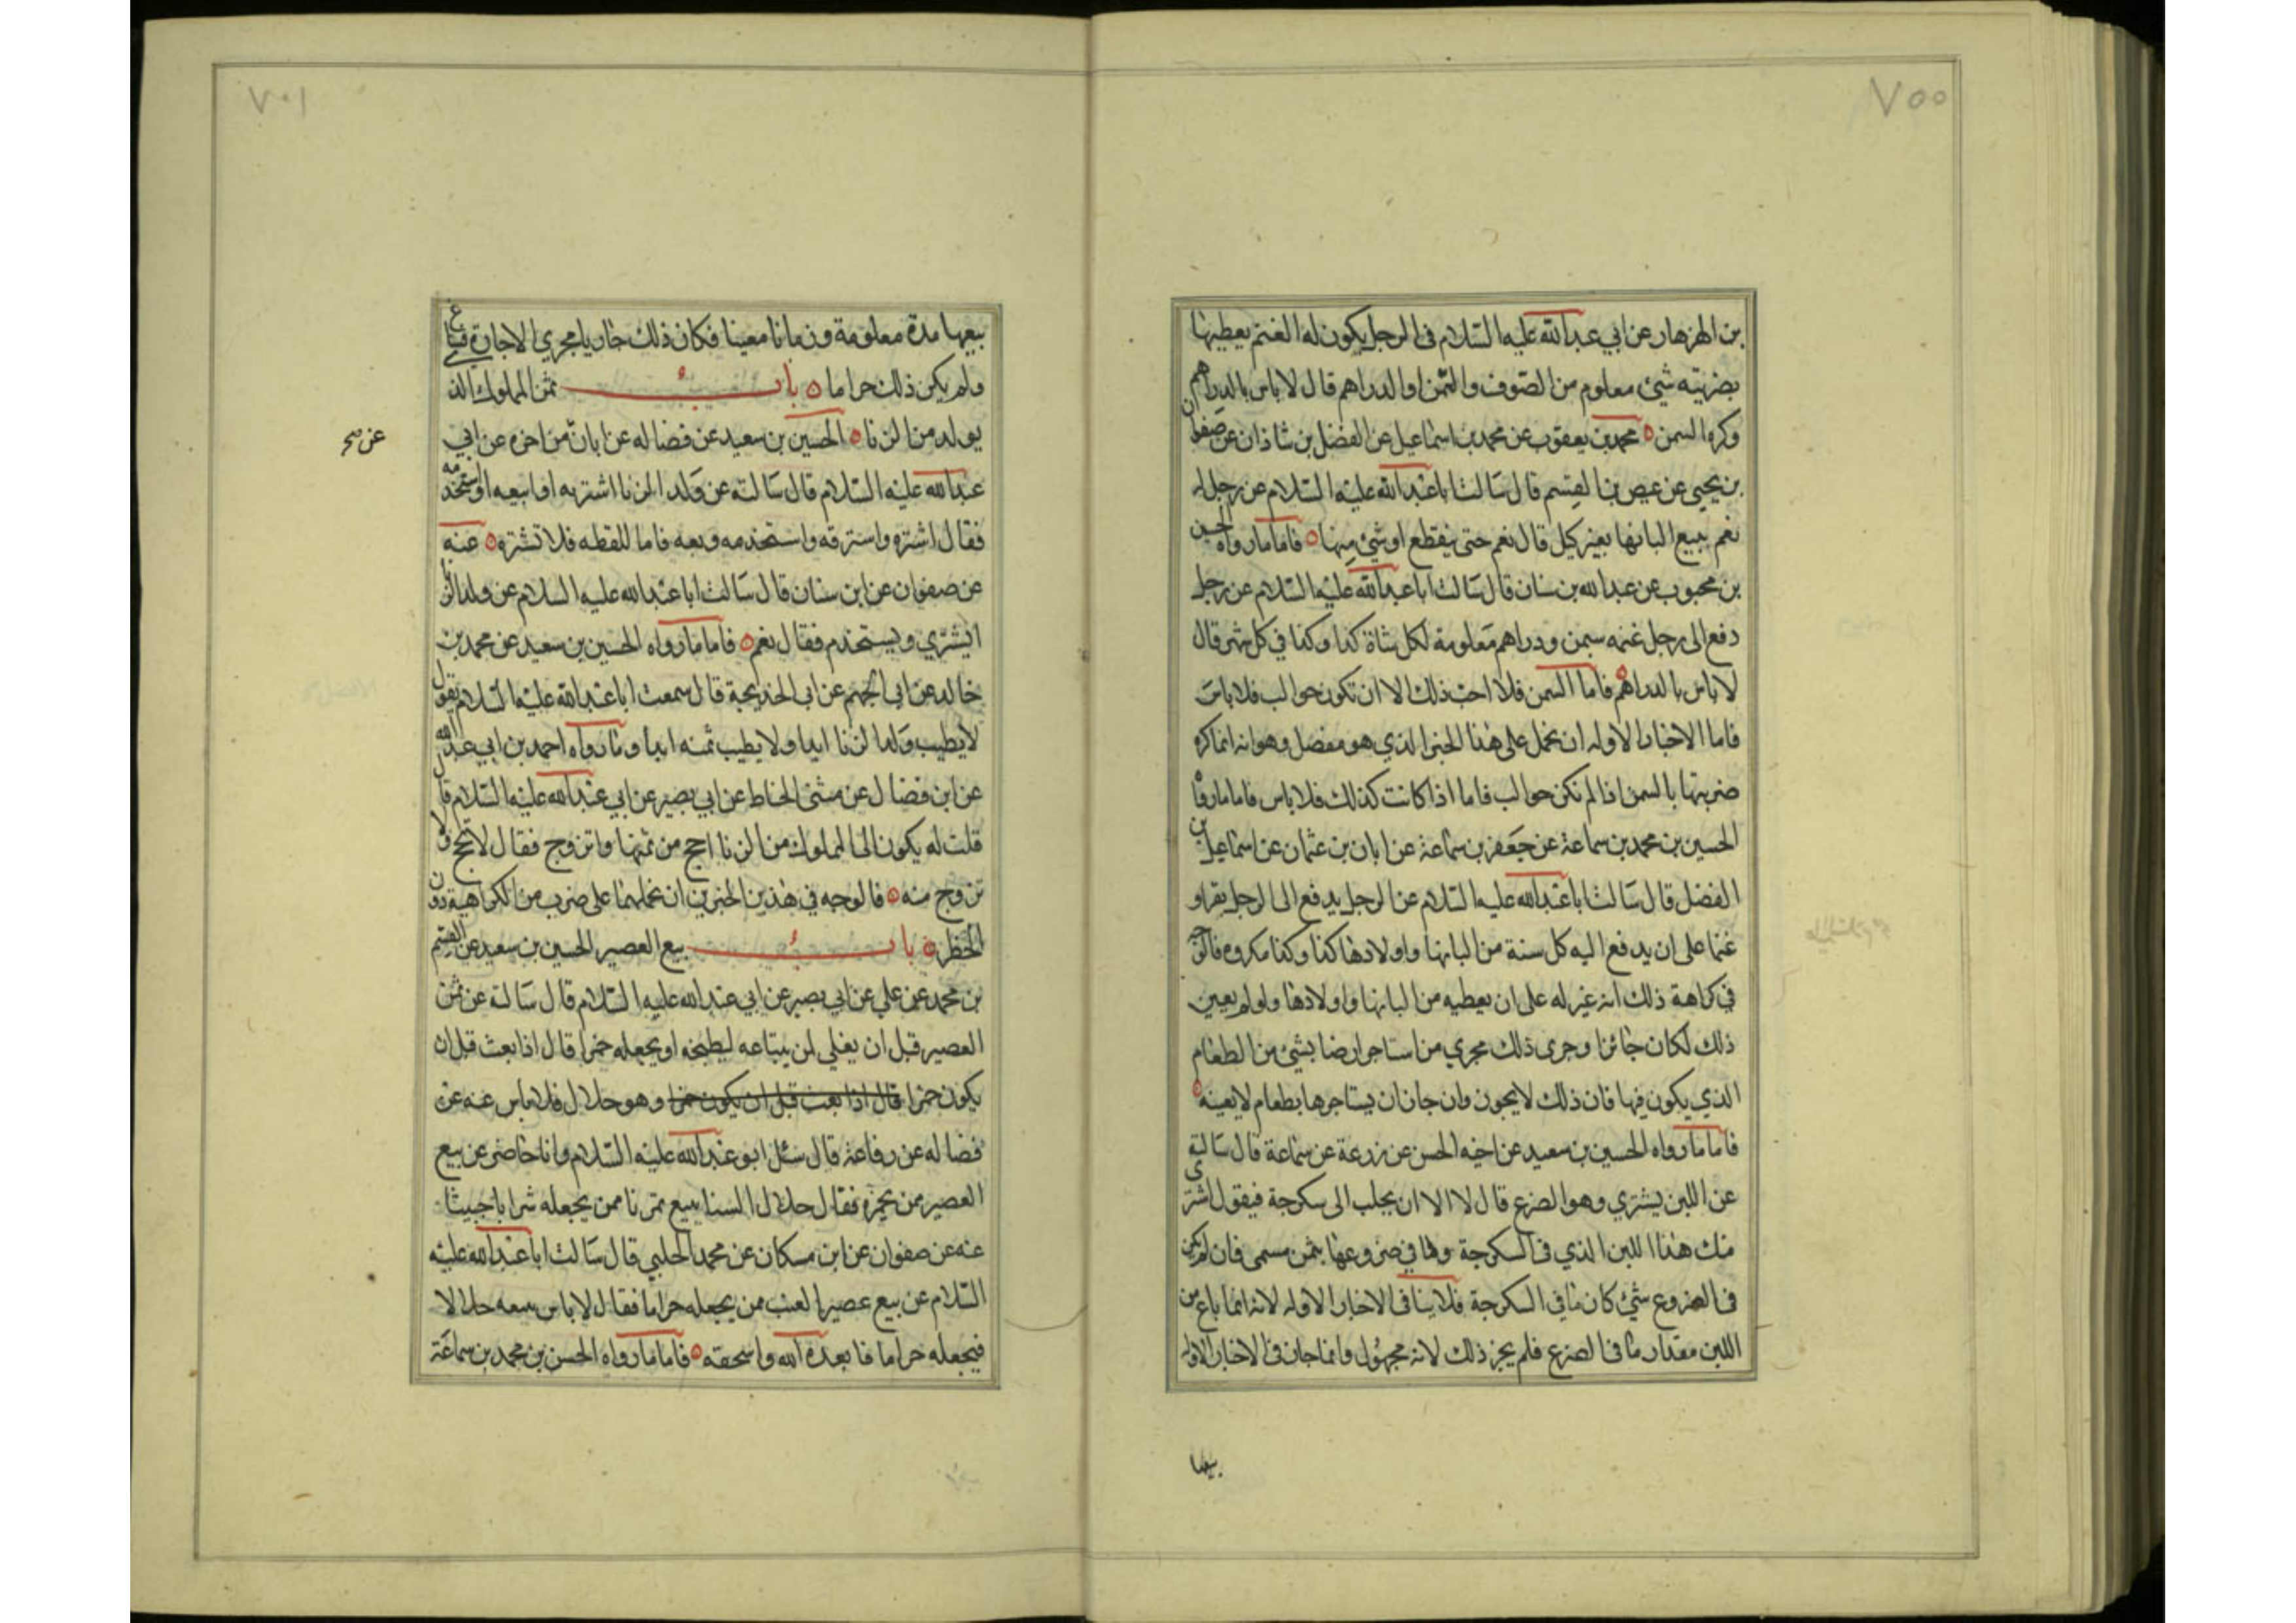 ٧٠٠
بن الهزهاز عن ابي عبدالله عليه السلام في الرجل يكون له الغنم يعطيها
بضريبته شيئ معلوم من الصوف والسمن او الدراهم قال لا باس بالدراهم
وكره السمن محمد بن يعقوب عن محمد بن اسماعيل عن الفضل بن شاذان عن صفوان
بن يحيي عن عيص بن القسم قال سالت ابا عبدالله عليه السلام عن رجل له
نعم يبيع البانها بغير كيل قال نعم حتى ينقطع او شئ منها فاما ما رواه الحسن
بن محبوب عن عبدالله بن سنان قال سالت ابا عبدالله عليه السلام عن رجل
دفع الى رجل غنمه بسمن ودراهم معلومة لكل شاة كذا وكذا في كل شهر قال
لا باس بالدراهم فاما السمن فلا احب ذلك الا ان تكون حوالب فلا باس
فاما الاخبار الاوله ان نحمل على هذا الخبر الذي هو مفصل وهو انه انما كره
ضريبتها بالسمن اذا لم تكن حوالب فاما اذا كانت كذلك فلا باس فاما ما رواه
الحسين بن محمد بن سماعة عن جعفر بن سماعة عن ابان بن عثمان عن اسماعيل بن
الفضل قال سالت ابا عبدالله عليه السلام عن الرجل يدفع الى الرجل بقرا و
غنما على ان يدفع اليه كل سنة من البانها واولادها كذا وكذا مكروه فالوجه
في كراهة ذلك انه غير له على ان يعطيه من البانها واولادها ولو لم يعين
ذلك لكان جائزا وجرى ذلك مجري من استاجر ارضا بشئ من الطعام
الذي يكون فيها فان ذلك لا يجوز وان جاز ان يستاجرها بطعام لا بعينه
فاما ما رواه الحسين بن سعيد عن اخيه الحسن عن زرعة عن سماعة قال سالته
عن اللبن يشتري وهو الضرع قال لا الا ان يحلب الى سكرجة فيقول اشتري
منك هذا اللبن الذي في السكرجة وما في ضروعها بثمن مسمى فان لم يكن
في الضروع شئ كان ما في السكرجة فلا ينافى الاخبار الاوله لانه انما باع من
اللبن مقدار ما في الضرع فلم يجز ذلك لانه مجهول وانما جاز في الاخبار الاوله
بيعها
٧٠١
بيعها مدة معلومة وزمانا معينا فكان ذلك جاريا مجري الاجارة فساغ
ولم يكن ذلك حراما باب ثمن المملوك الذ
يولد من الزنا الحسين بن سعيد عن فضاله عن ابان من اخره عن ابي
عن صح
عبدالله عليه السلام قال سالته عن ولد الزنا اشتريه او ابيعه او استخدمه
فقال اشتره واسترقه واستخدمه وبعه فاما للقطه فلا تشتره عنه
عن صفوان عن ابن سنان قال سالت ابا عبدالله عليه السلام عن ولد الزنا
ايشتري ويستخدم فقال نعم فاما ما رواه الحسين بن سعيد عن محمد بن
خالد عن ابي الجهم عن ابي الخديجة قال سمعت ابا عبدالله عليه السلام يقول
لا يطيب ولد الزنا ابدا ولا يطيب ثمنه ابدا وما رواه احمد بن ابي عبدالله
عن ابن فضال عن مثنى الحناط عن ابي بصير عن ابي عبدالله عليه السلام قال
قلت له يكون الى المملوك من الزنا احج من ثمنها واتزوج فقال لا تحج ولا
تزوج منه فالوجه في هذين الخبرين ان نحملهما على ضرب من الكراهية دون
الحظر باب بيع العصير الحسين بن سعيد عن القسم
بن محمد عن علي عن ابي بصير عن ابي عبدالله عليه السلام قال سالته عن ثمن
العصير قبل ان يغلي لمن يبتاعه ليطبخه او يجعله خمرا قال اذا بعث قبل ان
يكون خمرا قال اذا بعث قبل ان يكون خمرا وهو حلال فلا باس عنه عن
فضاله عن رفاعة قال سئل ابو عبدالله عليه السلام وانا حاضر عن بيع
العصير من يخمره فقال حلال السنا نبيع تمرنا ممن يجعله شرابا خبيثا
عنه عن صفوان عن ابن مسكان عن محمد الحلبي قال سالت ابا عبدالله عليه
السلام عن بيع عصير العنب ممن يجعله حراما فقال لا باس ببيعه حلالا
فيجعله حراما فابعده الله واسحقه فاما ما رواه الحسن بن محمد بن سماعة